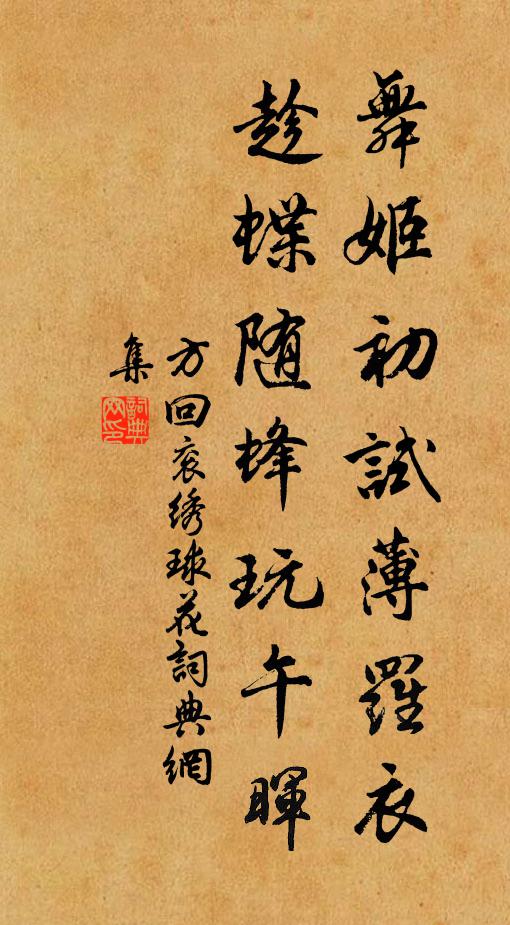 舞姬初試薄羅衣
趁蝶随蜂玩午暉
方回衮绣球花詞典網
集
詞典
网印